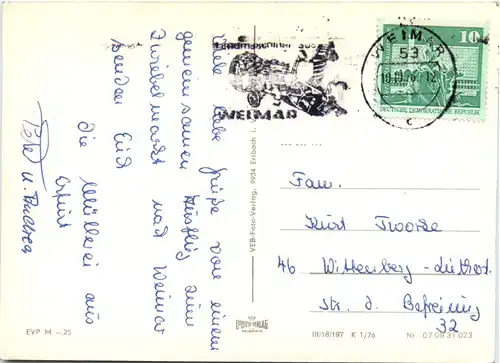 Viele liebe Grüße von einem
gemeinsamen Ausflug zum
Zwiebelmarkt nach Weimar
senden Euch
die Müllerei aus
Erfurt
u.
WEIMAR
WEIMAR
53
12
c
10
DEUTSCHE DEMOKRATISCHE REPUBLIK
VEB Foto-Verlag, 9934 Erlbach i.
Fam.
Kurt
46 Wittenberg-Lutherst.
Str. d. Befreiung
32
EVP M -.25
III/18/197 K 1/76 Nr. 07 09 31 023